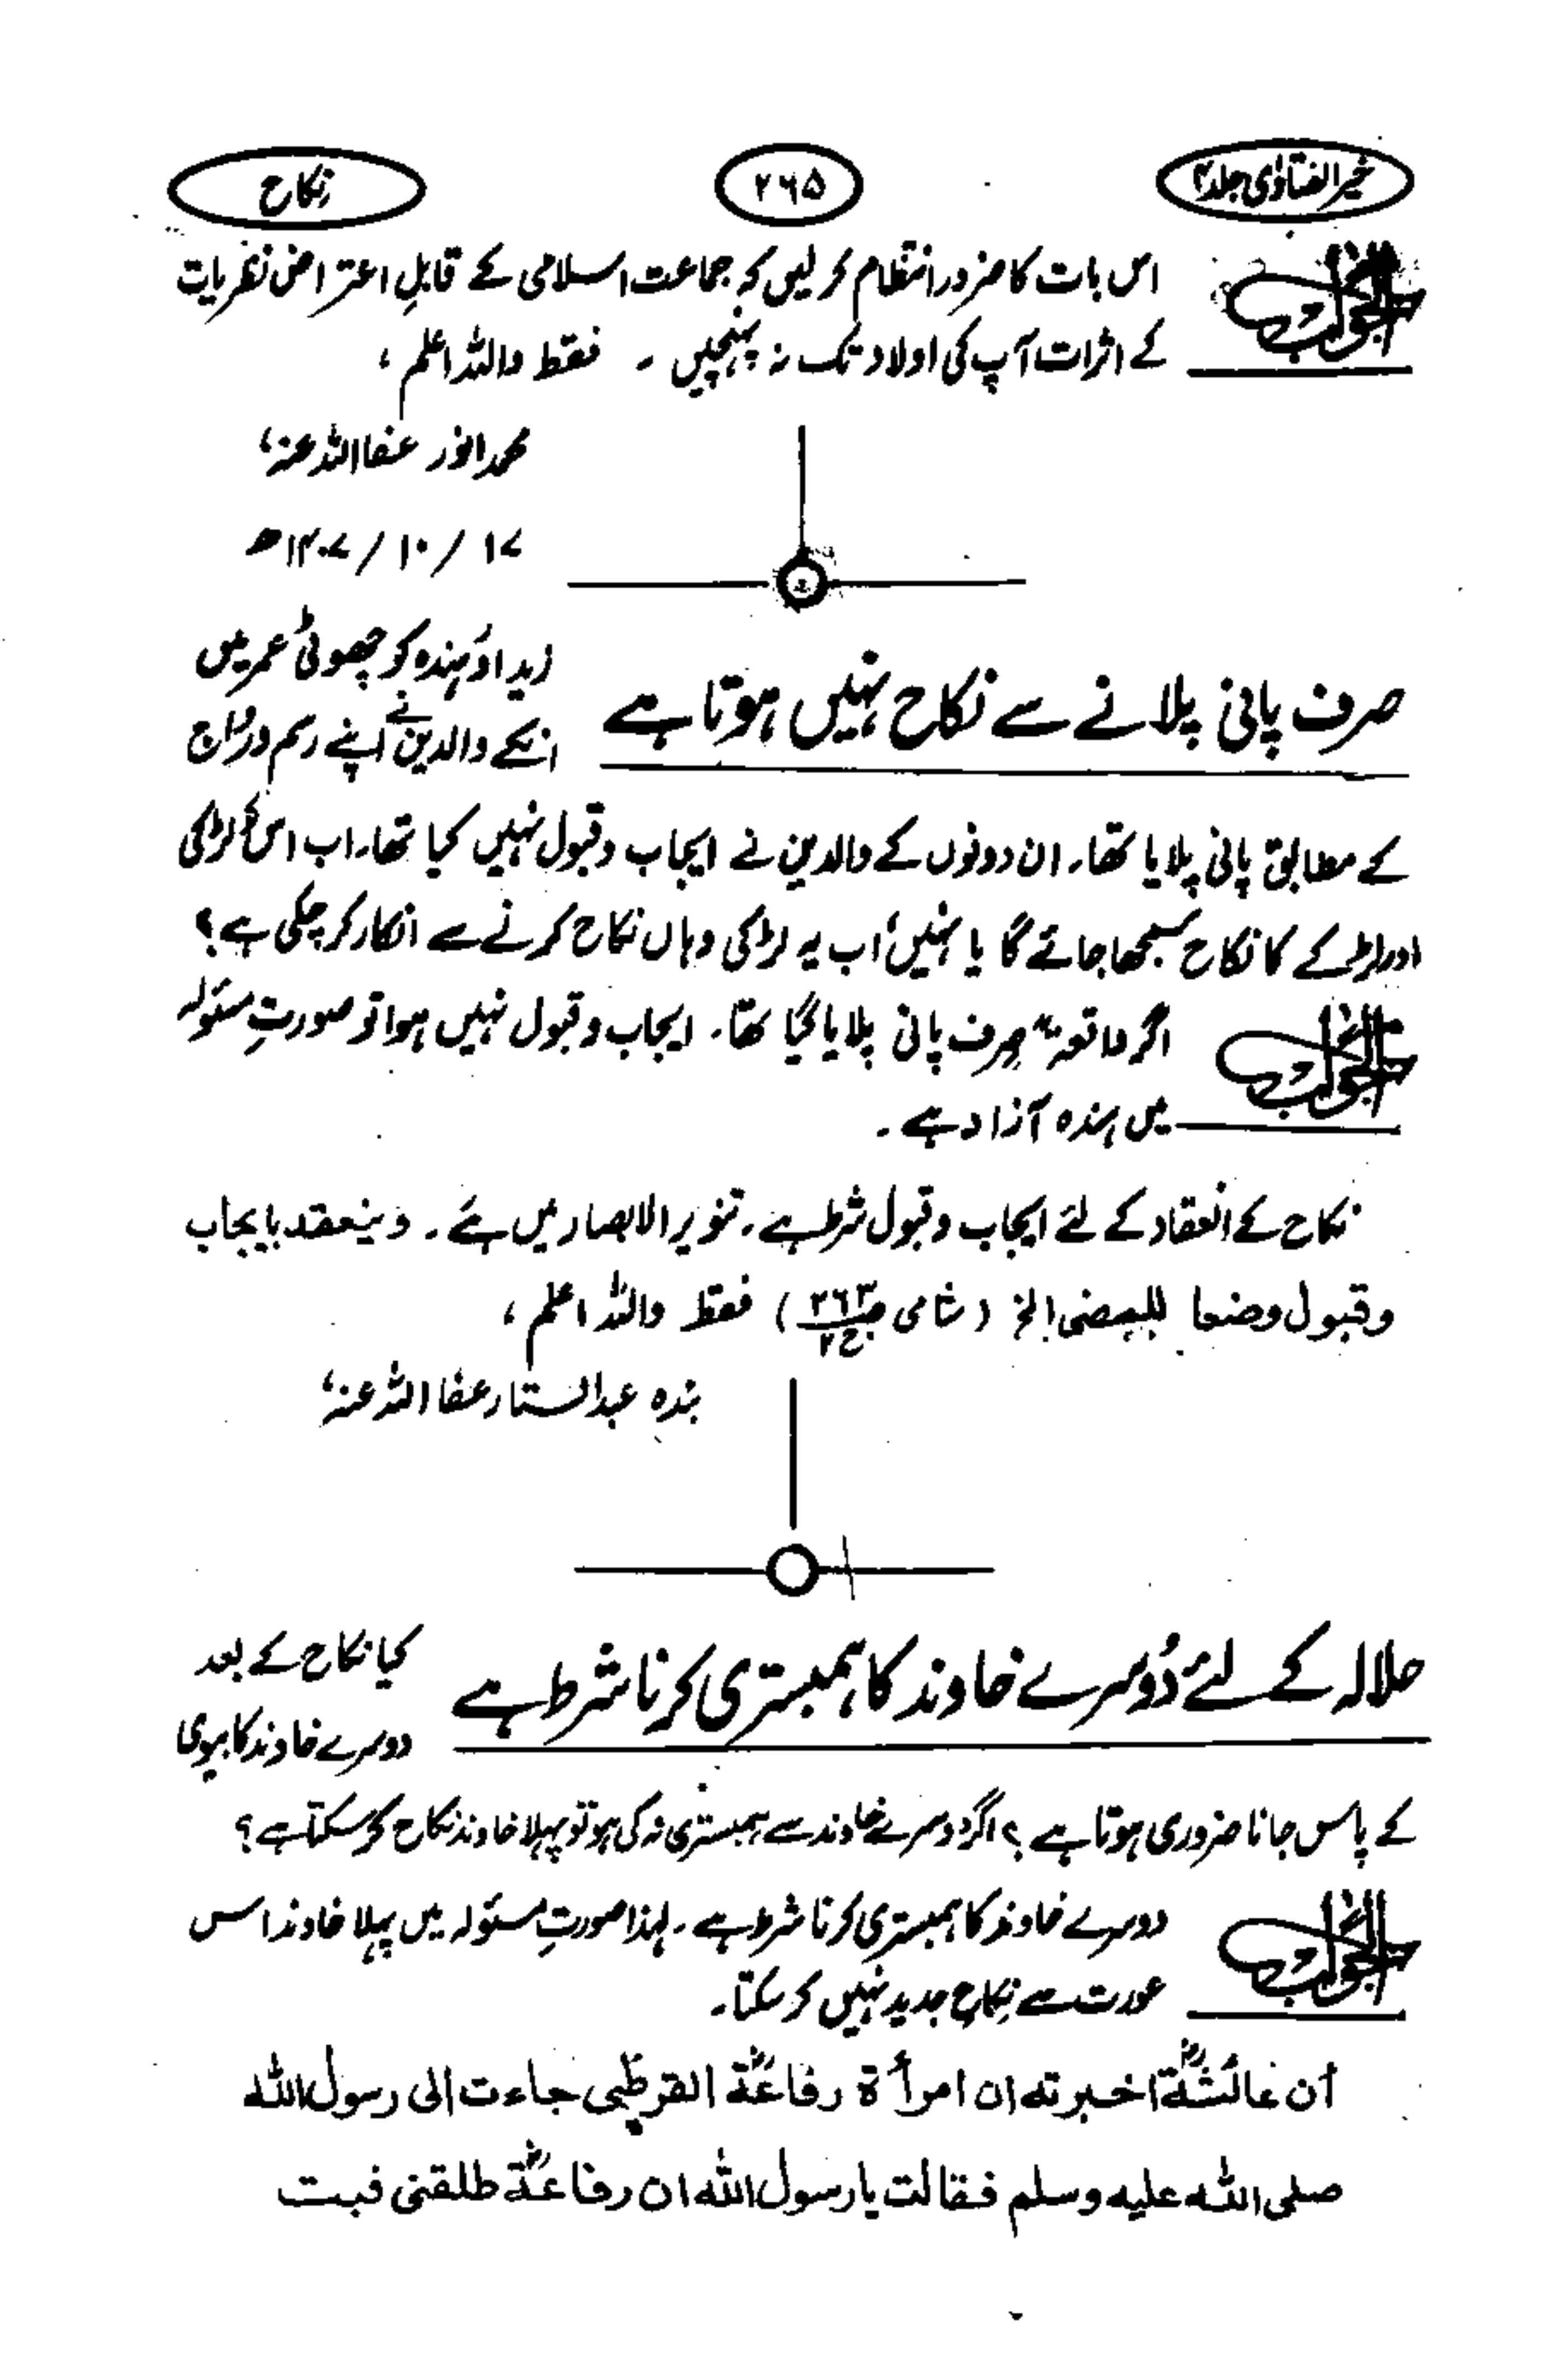 خیر الفتاوٰی جلد ۴
۲۶۵
نکاح
الجواب
اس بات کا ضرور انتظام کر لیں کہ جماعت اسلامی کے قابلِ اعتراض نظریات
کے اثرات آپ کی اولاد تک نہ پہنچیں ۔ فقط واللہ اعلم ،
محمد انور عفا اللہ عنہ،
۱۷ / ۱۰ / ۱۴۰۷ھ
صرف پانی پلانے سے نکاح نہیں ہوتا ہے
زید اور ہندہ کو چھوٹی عمر میں
انکے والدین نے اپنے رسم و رواج
کے مطابق پانی پلایا تھا۔ ان دونوں کے والدین نے ایجاب و قبول نہیں کیا تھا۔ اب اس لڑکی
اور لڑکے کا نکاح سمجھا جائے گا یا نہیں؟ اب یہ لڑکی وہاں نکاح کرنے سے انکار کر چکی ہے؟
الجواب
اگر واقعۃً صرف پانی پلایا گیا تھا۔ ایجاب و قبول نہیں ہوا تو صورتِ مسئولہ
میں ہندہ آزاد ہے ۔
نکاح کے انعقاد کے لئے ایجاب و قبول شرط ہے ۔ تنویر الابصار میں ہے ۔ وینعقد بایجاب
وقبول وضعا للمضی الخ (شامی ص۲۶۳ ج۲) فقط واللہ اعلم ،
بندہ عبدالستار عفا اللہ عنہ،
حلالہ کے لئے دُوسرے خاوند کا ہمبستری کرنا شرط ہے
کیا نکاح کے بعد
دوسرے خاوند کا بیوی
کے پاس جانا ضروری ہوتا ہے ؟ اگر دوسرے خاوند سے ہمبستری نہ کی ہو تو پہلا خاوند نکاح کر سکتا ہے ؟
الجواب
دوسرے خاوند کا ہمبستری کرنا شرط ہے ۔ لہذا صورتِ مسئولہ میں پہلا خاوند اس
عورت سے نکاح جدید نہیں کر سکتا ۔
أن عائشةؓ اخبرته ان امرأة رفاعةؓ القرظی جاءت الی رسول الله
صلی الله علیه وسلم فقالت یا رسول الله ان رفاعةؓ طلقنی فبت